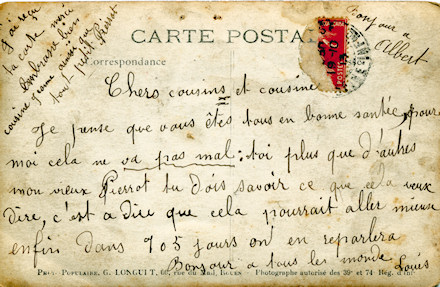 J'ai reçu
ta carte
Embrasse bien
cousine Jeanne
tout petit Pierrot
Bonjour à
Albert
CARTE POSTA
Correspondance
Chers cousins et cousine
Je pense que vous êtes tous en bonne santée, pour
moi cela ne va pas mal; toi plus que d'autres
mon vieux Pierrot tu dois savoir ce que cela veux
dire, c'est a dire que cela pourrait aller mieux
enfin dans 705 jours on en reparlera
Bonjour a tous les monde
Louis
PHOT. POPULAIRE, G. LONGUET, 68, rue du , ROUEN - Photographe autorisé des 39e et 74 Rég. d'Inf